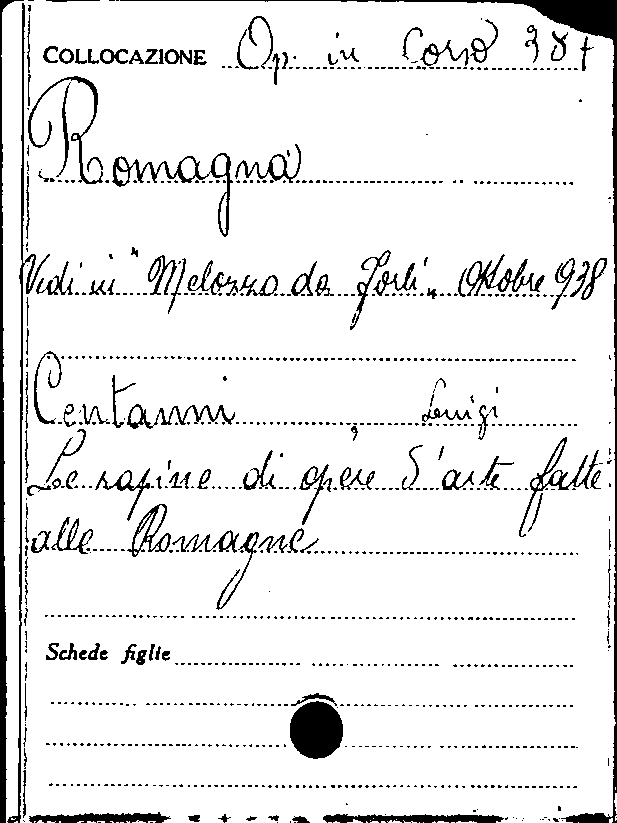 COLLOCAZIONE Op. in Corso 387
Romagna
Vedi in "Melozzo da Forlì„ Ottobre 938
Centanni, Luigi
Le rapine di opere d'arte fatte
alle Romagne
Schede figlie